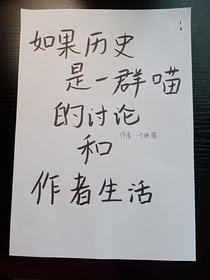 如果历史
是一群喵
的讨论
和
作者生活